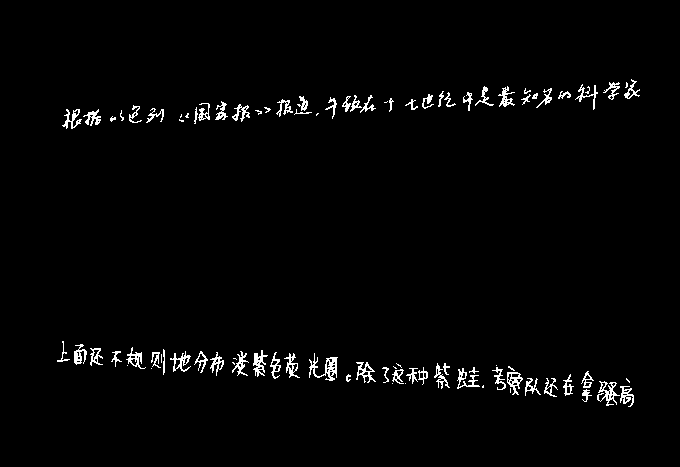 根据以色列《国家报》报道,牛顿在十七世纪中是最知名的科学家
上面还不规则地分布淡紫色荧光圈。除了这种紫蛙,考察队还在拿骚高